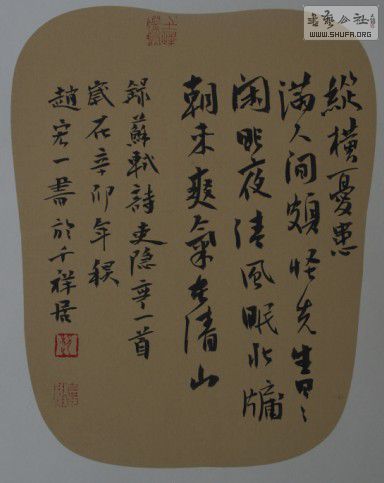 縱橫憂患
滿人间頗怪先生日〻
闲昨夜清風眠北牖
朝来爽氣在清山
錄蘇軾詩吏隐亭一首
歲在辛卯年秋
趙宏一書於千祥居
书艺公社
WWW.SHUFA.ORG